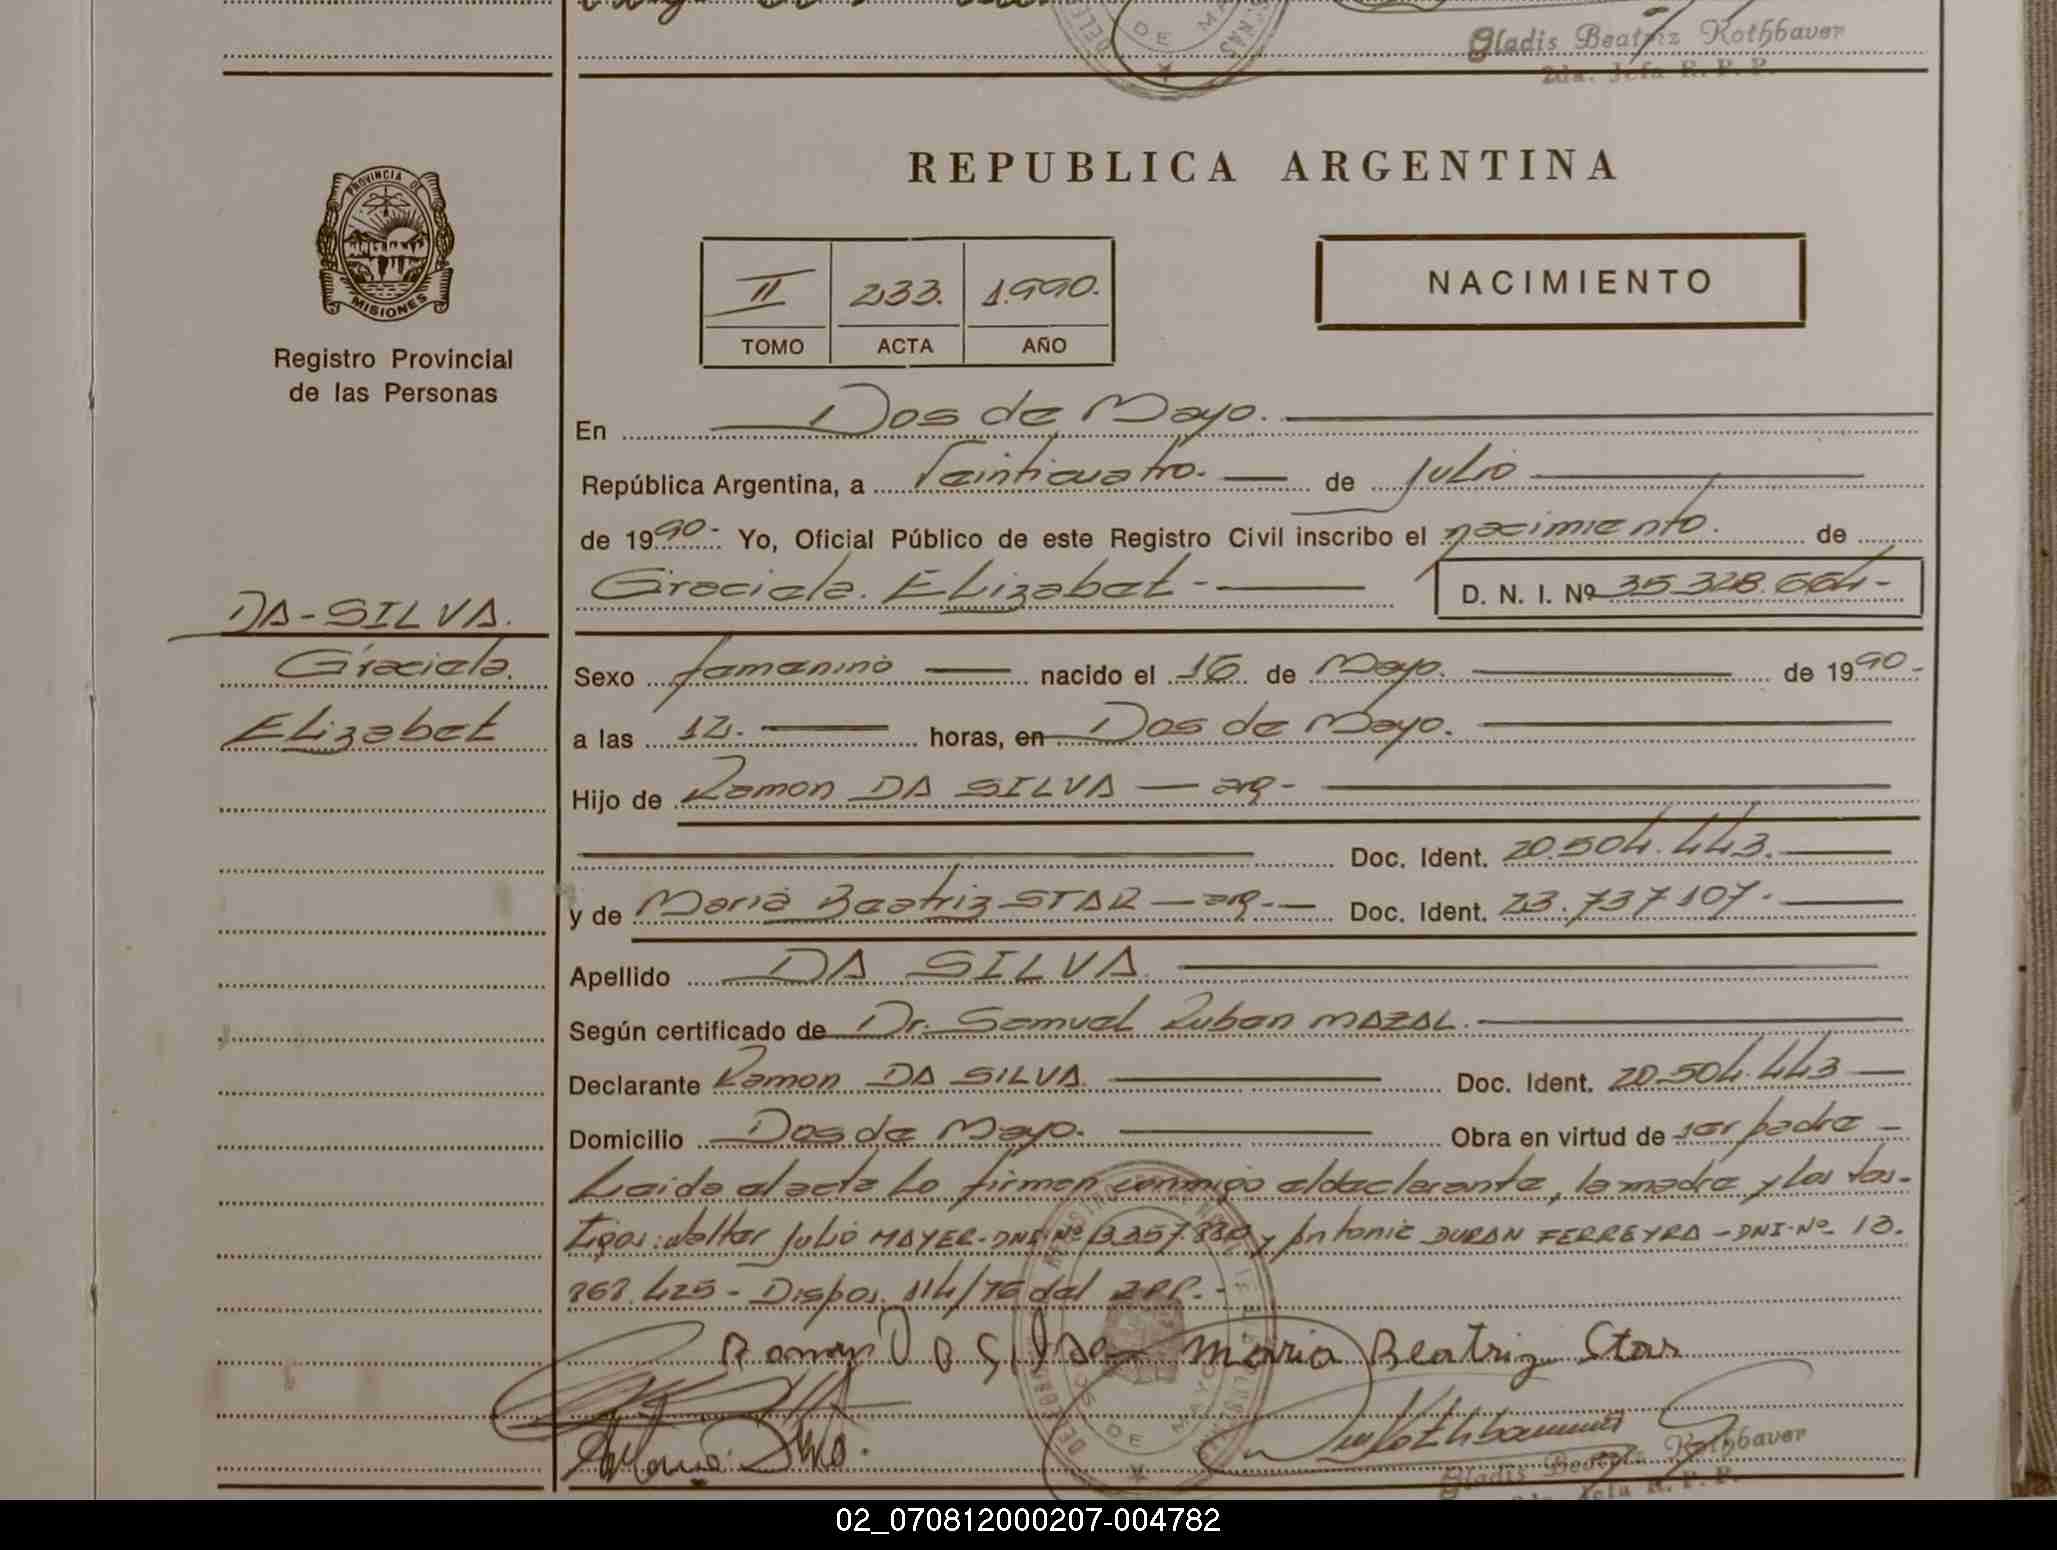 Gladis Beatriz Kothbauer
2da. Jefa R. P. P.
DE
PROVINCIA DE
MISIONES
Registro Provincial
de las Personas
REPUBLICA ARGENTINA
II 233. 1.990.
TOMO ACTA AÑO
NACIMIENTO
En Dos de Mayo.
República Argentina, a Veinticuatro. de Julio
de 1990- Yo, Oficial Público de este Registro Civil inscribo el nacimiento. de
Graciela. Elizabet - D. N. I. Nº 35.328.664-
DA-SILVA.
Graciela.
Elizabet
Sexo famanino nacido el 16 de Mayo. de 1990-
a las 12. horas, en Dos de Mayo.
Hijo de Ramon DA SILVA - arg-
Doc. Ident. 20.504.443.
y de Maria Beatriz STAR - arg.- Doc. Ident. 23.737.107.-
Apellido DA SILVA.
Según certificado de Dr. Samuel Ruben MAZAL.
Declarante Ramon DA SILVA. Doc. Ident. 20.504.443
Domicilio Dos de Mayo. Obra en virtud de ser padre -
Leida el acta Lo firman conmigo el declarante, la madre y los tes-
tigos: Walter Julio MAYER-DNI-Nº y Antonio DURAN FERREYRA-DNI-Nº 13.
425 - Dispos. 114/76 del RPP.-
Ramon Da Silva Maria Beatriz Star
DOS DE MAYO
Gladis Beatriz Kothbauer
2da. Jefa R. P. P.
02_070812000207-004782